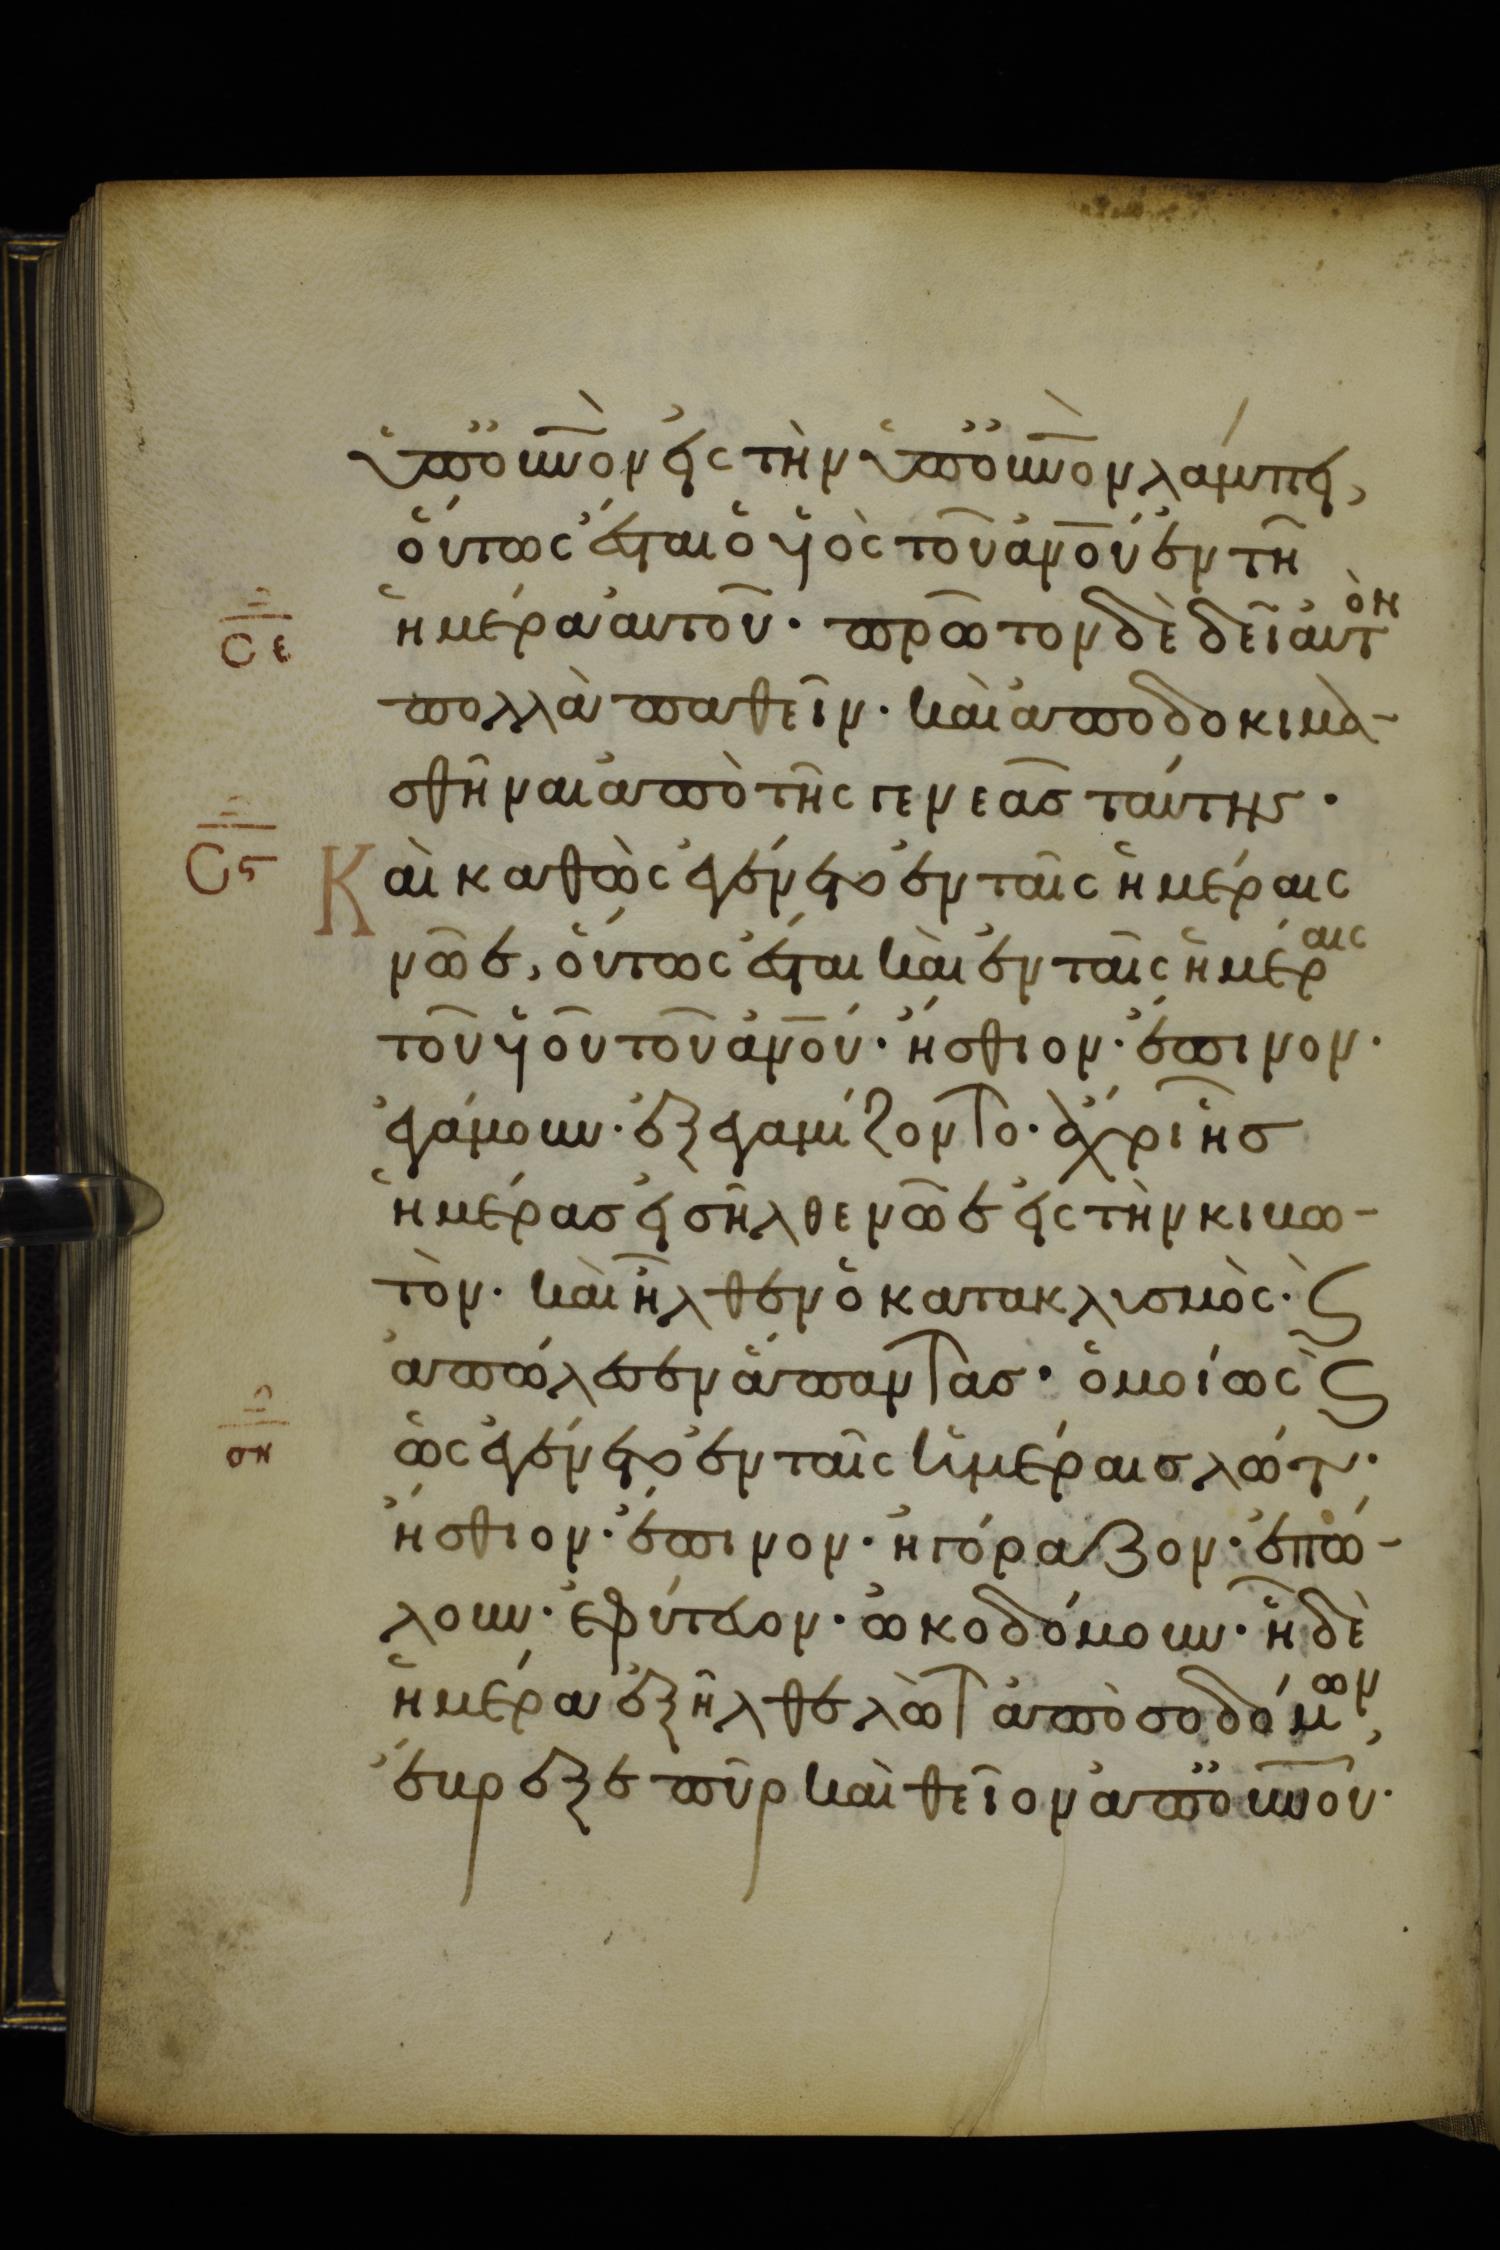 ὑπ' οὐν̅ὸν εἰς τὴν ὑπ' οὐν̅ὸν λάμπει,
οὕτως ἔσται ὁ υἱὸς τοῦ ἀν̅ου ἐν τῆ
σε ἡμέρα αὐτοῦ· πρῶτον δὲ δεῖ αὐτὸν
πολλὰ παθεῖν· καὶ ἀποδοκιμα-
σθῆναι ἀπὸ τῆς γενεᾶς ταύτης·
σϛ Καὶ καθὼς ἐγένετο ἐν ταῖς ἡμέραις
νῶε, οὕτως ἔσται καὶ ἐν ταῖς ἡμέραις
τοῦ υἱοῦ τοῦ ἀν̅ου· ἤσθιον· ἔπινον·
ἐγάμουν· ἐξεγαμίζοντο· ἄχρι ἧς
ἡμέρας εἰσῆλθε νῶε εἰς τὴν κιβω-
τὸν· καὶ ἦλθεν ὁ κατακλυσμὸς· ϗ
ἀπώλεσεν ἅπαντας· ὁμοίως ϗ
ση ὡς ἐγένετο ἐν ταῖς ἡμέραις λώτ·
ἤσθιον· ἔπινον· ἠγόραζον· ἐπώ-
λουν· ἐφύτευον· ὠκοδόμουν· ἧ δὲ
ἡμέρα ἐξῆλθε λὼτ ἀπὸ σοδόμων,
ἔβρεξε πῦρ καὶ θεῖον ἀπ' οὐν̅οῦ·